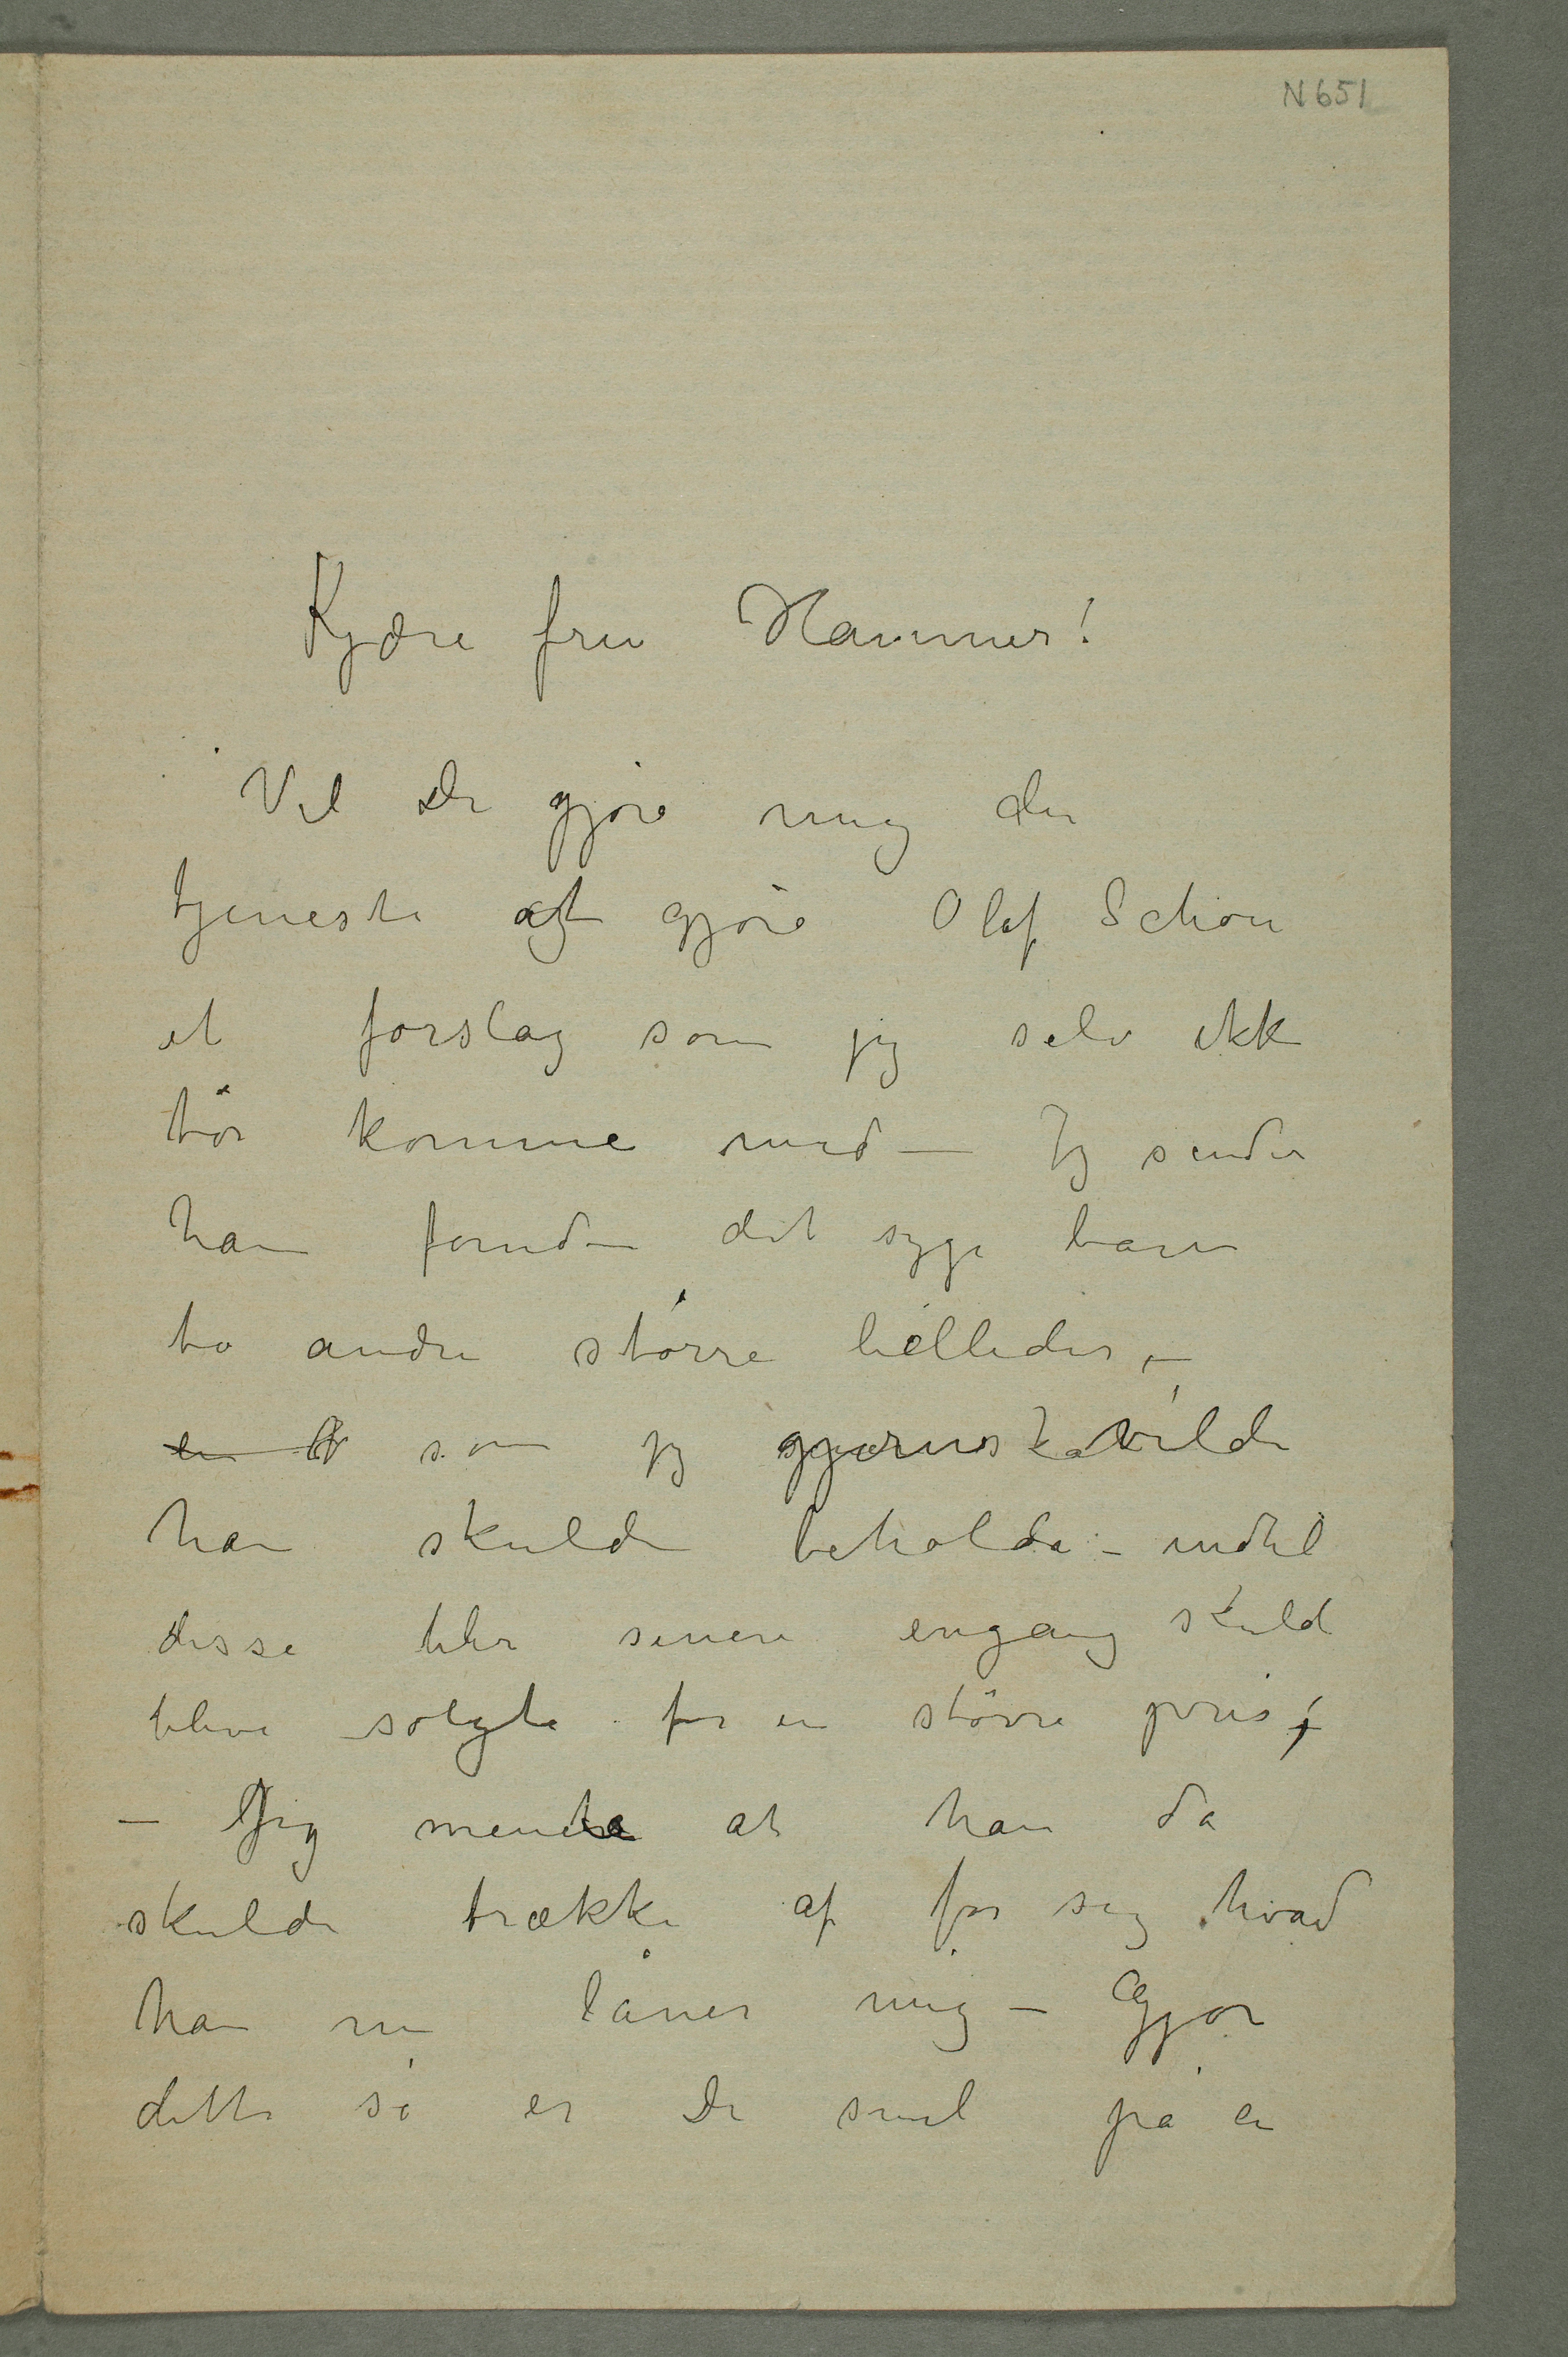 N 651
Kjære fru Hammer!
Vil De gjøre mig den
tjeneste at gjøre Olaf Schou
et forslag som jeg selv ikke
tør komme med – Jeg sender
ham foruden det syge barn
to andre større billeder, –
som jeg gjerne vilde
han skulde beholde – indtil
disse senere engang skuld
blive solgte for en større pris;
– Jeg mente at han da
skulde trække af for sig hvad
han nu låner mig – Gjør
dette så er De snil på en